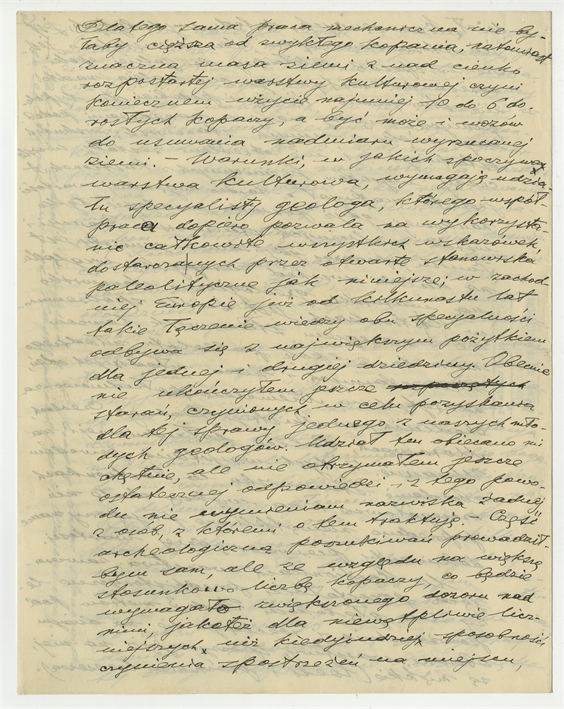 Dlatego sama praca mechaniczna nie by-
łaby cięższa od zwykłego kopania, natomiast
znaczna masa ziemi z nad cienko
rozpostartej warstwy kulturowej czyni
koniecznem użycie najmniej 10 do 6 do-
rosłych kopaczy, a być może i wozów
do usuwania nadmiaru wyrzucanej
ziemi. – Warunki, w jakich spoczywa
warstwa kulturowa, wymagają udzia-
łu specjalisty geologa, którego współ-
praca dopiero pozwala na wykorzysta-
nie całkowite wszystkich wskazówek,
dostarczanych przez otwarte stanowiska
paleolityczne jak niniejsze; w zachod-
niej Europie już od kilkunastu lat
takie łączenie wiedzy obu specjalności
odbywa się z największym pożytkiem
dla jednej i drugiej dziedziny. Obecnie
nie ukończyłem jeszcze
starań, czynionych w celu pozyskania
dla tej sprawy jednego z naszych mło-
dych geologów. Udział ten obiecano mi
chętnie, ale nie otrzymałem jeszcze
ostatecznej odpowiedzi i z tego powo-
du nie wymieniam nazwiska żadnej
z osób, z któremi o tem traktuję. – Część
archeologiczną poszukiwań prowadził-
bym sam, ale ze względu na większą
stosunkowo liczbę kopaczy, co będzie
wymagało zwiększonego dozoru nad
nimi, jakoteż dla niewątpliwie licz-
niejszych, niż kiedyindziej sposobności
czynienia spostrzeżeń na miejscu,